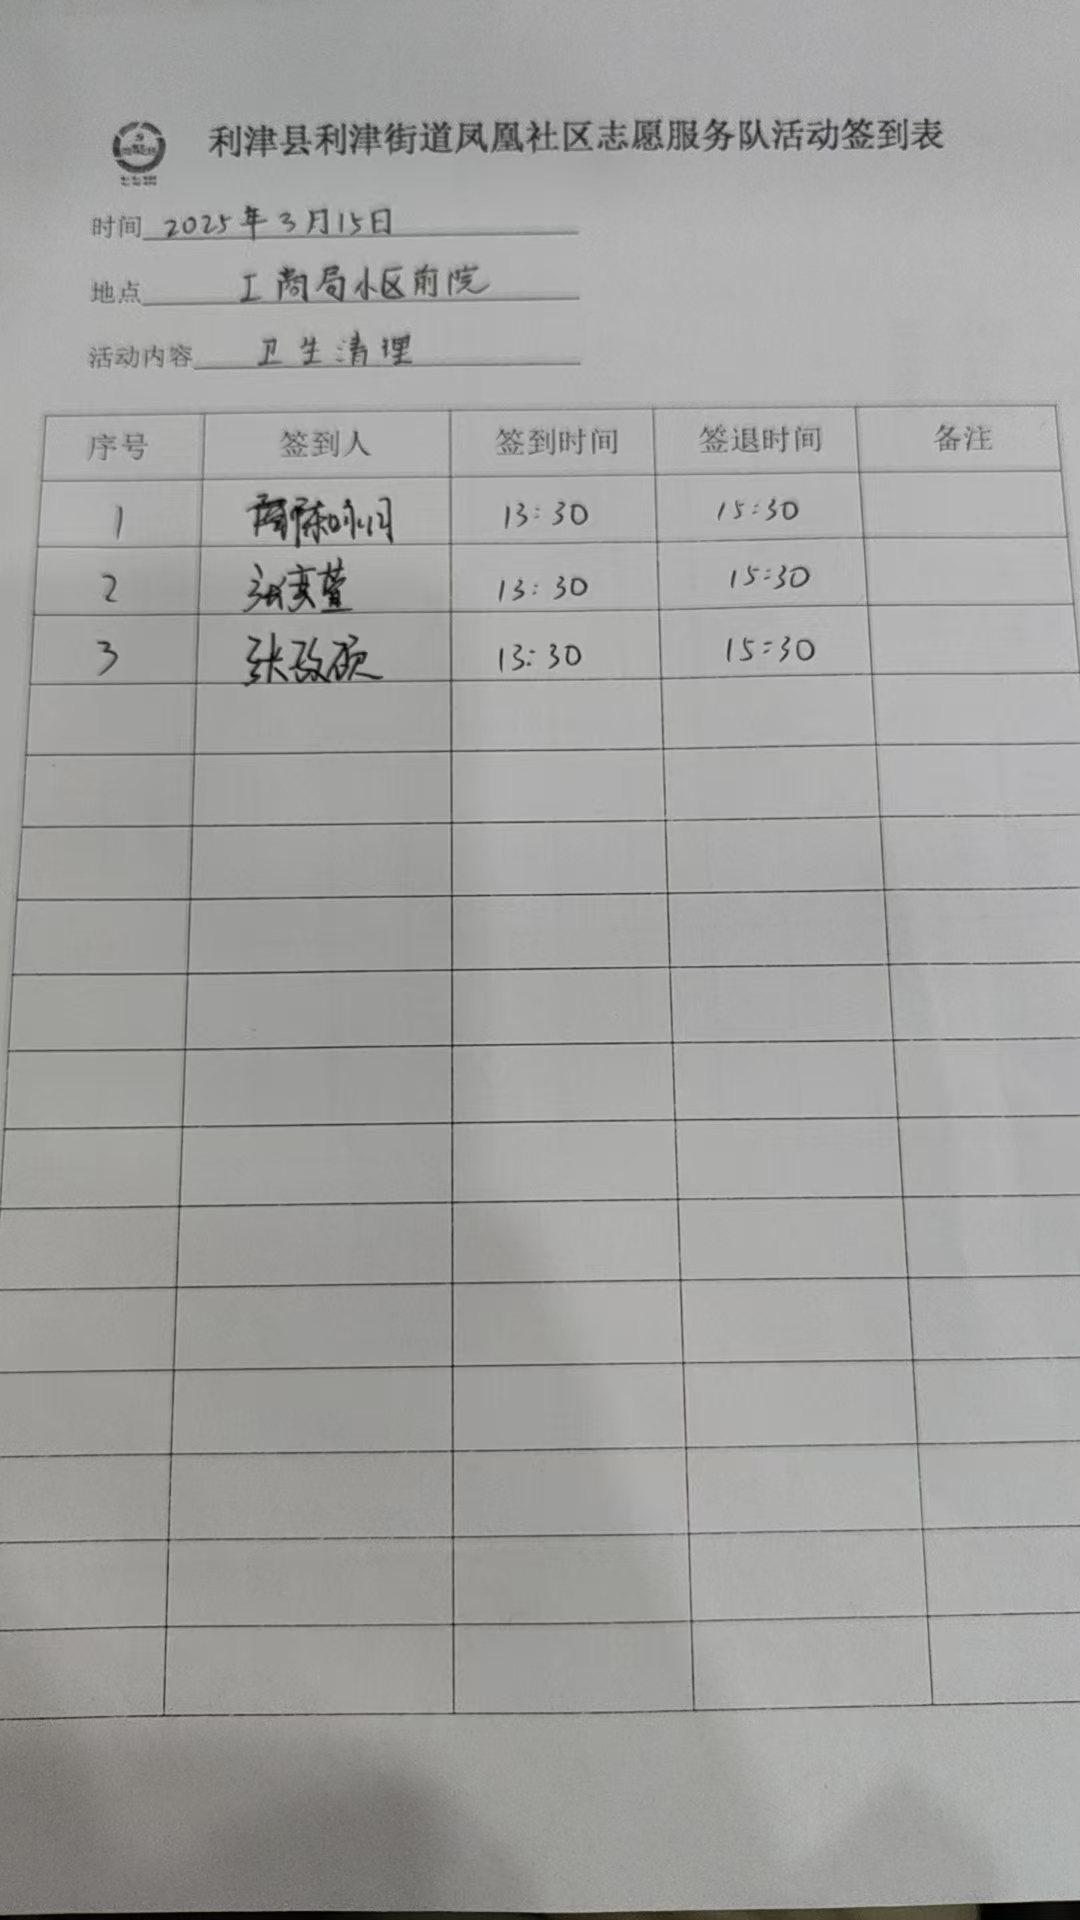 利津县利津街道凤凰社区志愿服务队活动签到表
时间 2025年3月15日
地点 工商局小区前院
活动内容 卫生清理
序号 签到人 签到时间 签退时间 备注
1 13:30 15:30
2 张奕萱 13:30 15:30
3 张孜硕 13:30 15:30